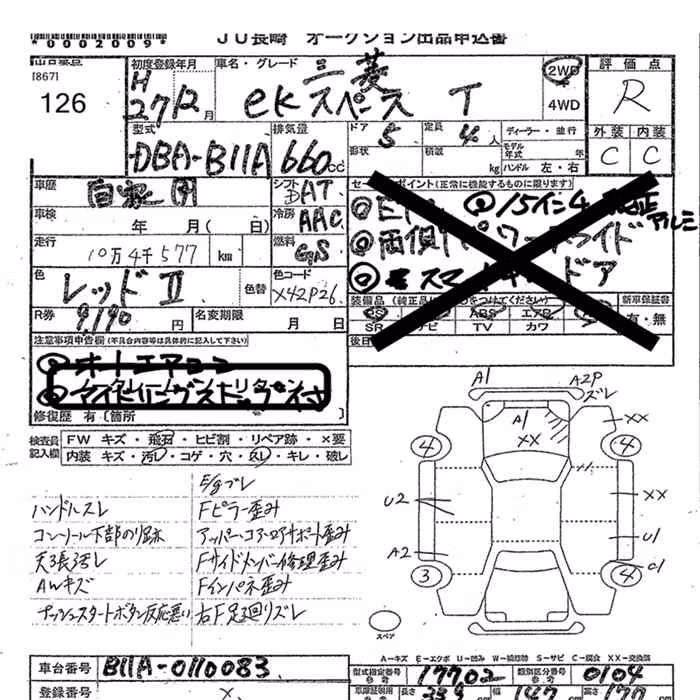 *0002009*
JU長崎 オークション出品申込書
[867]
126
初度登録年月
H27 12月
車名・グレード
三菱
ekスペース T
2WD
4WD
評価点
R
外装 内装
C C
型式
DBA-B11A
排気量
660cc
ドア
5
定員
4人
ディーラー・並行
形状
積載
kg
モデル年式
年
ハンドル 左・右
車歴
自家用
シフト
DAT
セールスポイント(正常に機能するものに限ります)
車検
年 月(
冷房
AAC
走行
10万4千577 km
燃料
GAS
両側パワースライド
ドア
色
レッドII
色替
色カラーコード
X42P26
R券
9,190円
名変期限
月 日
装備品
SR ナビ TV カワ
新車保証書
有・無
注意事項申告欄(不具合内容等は具体的に記入して下さい)
オートエアコン
修復歴 有〔箇所
検査員記入欄
FW キズ・飛石・ヒビ割・リペア跡・×要
内装 キズ・汚レ・コゲ・穴・スレ・キレ・破レ
E/gブレ
ハンドルスレ
Fピラー歪み
コンソール下部のり跡
アッパーコアロアサポート歪み
天張汚レ
Fサイドメンバー修理歪み
AWキズ
Fインパネ歪み
プッシュスタートボタン反応悪い
右F足廻リズレ
A1
A2P
ズレ
A1
XX
XX
4
4
U2
XX
U1
A2
C1
3
4
スペア
A-キズ E-エクボ U-凹み W-補修跡 S-サビ C-腐食 XX-交換済
車台番号
B11A-0110083
型式指定番号
17702
類別区分番号
0104
登録番号
長さ
339
幅
147
高さ